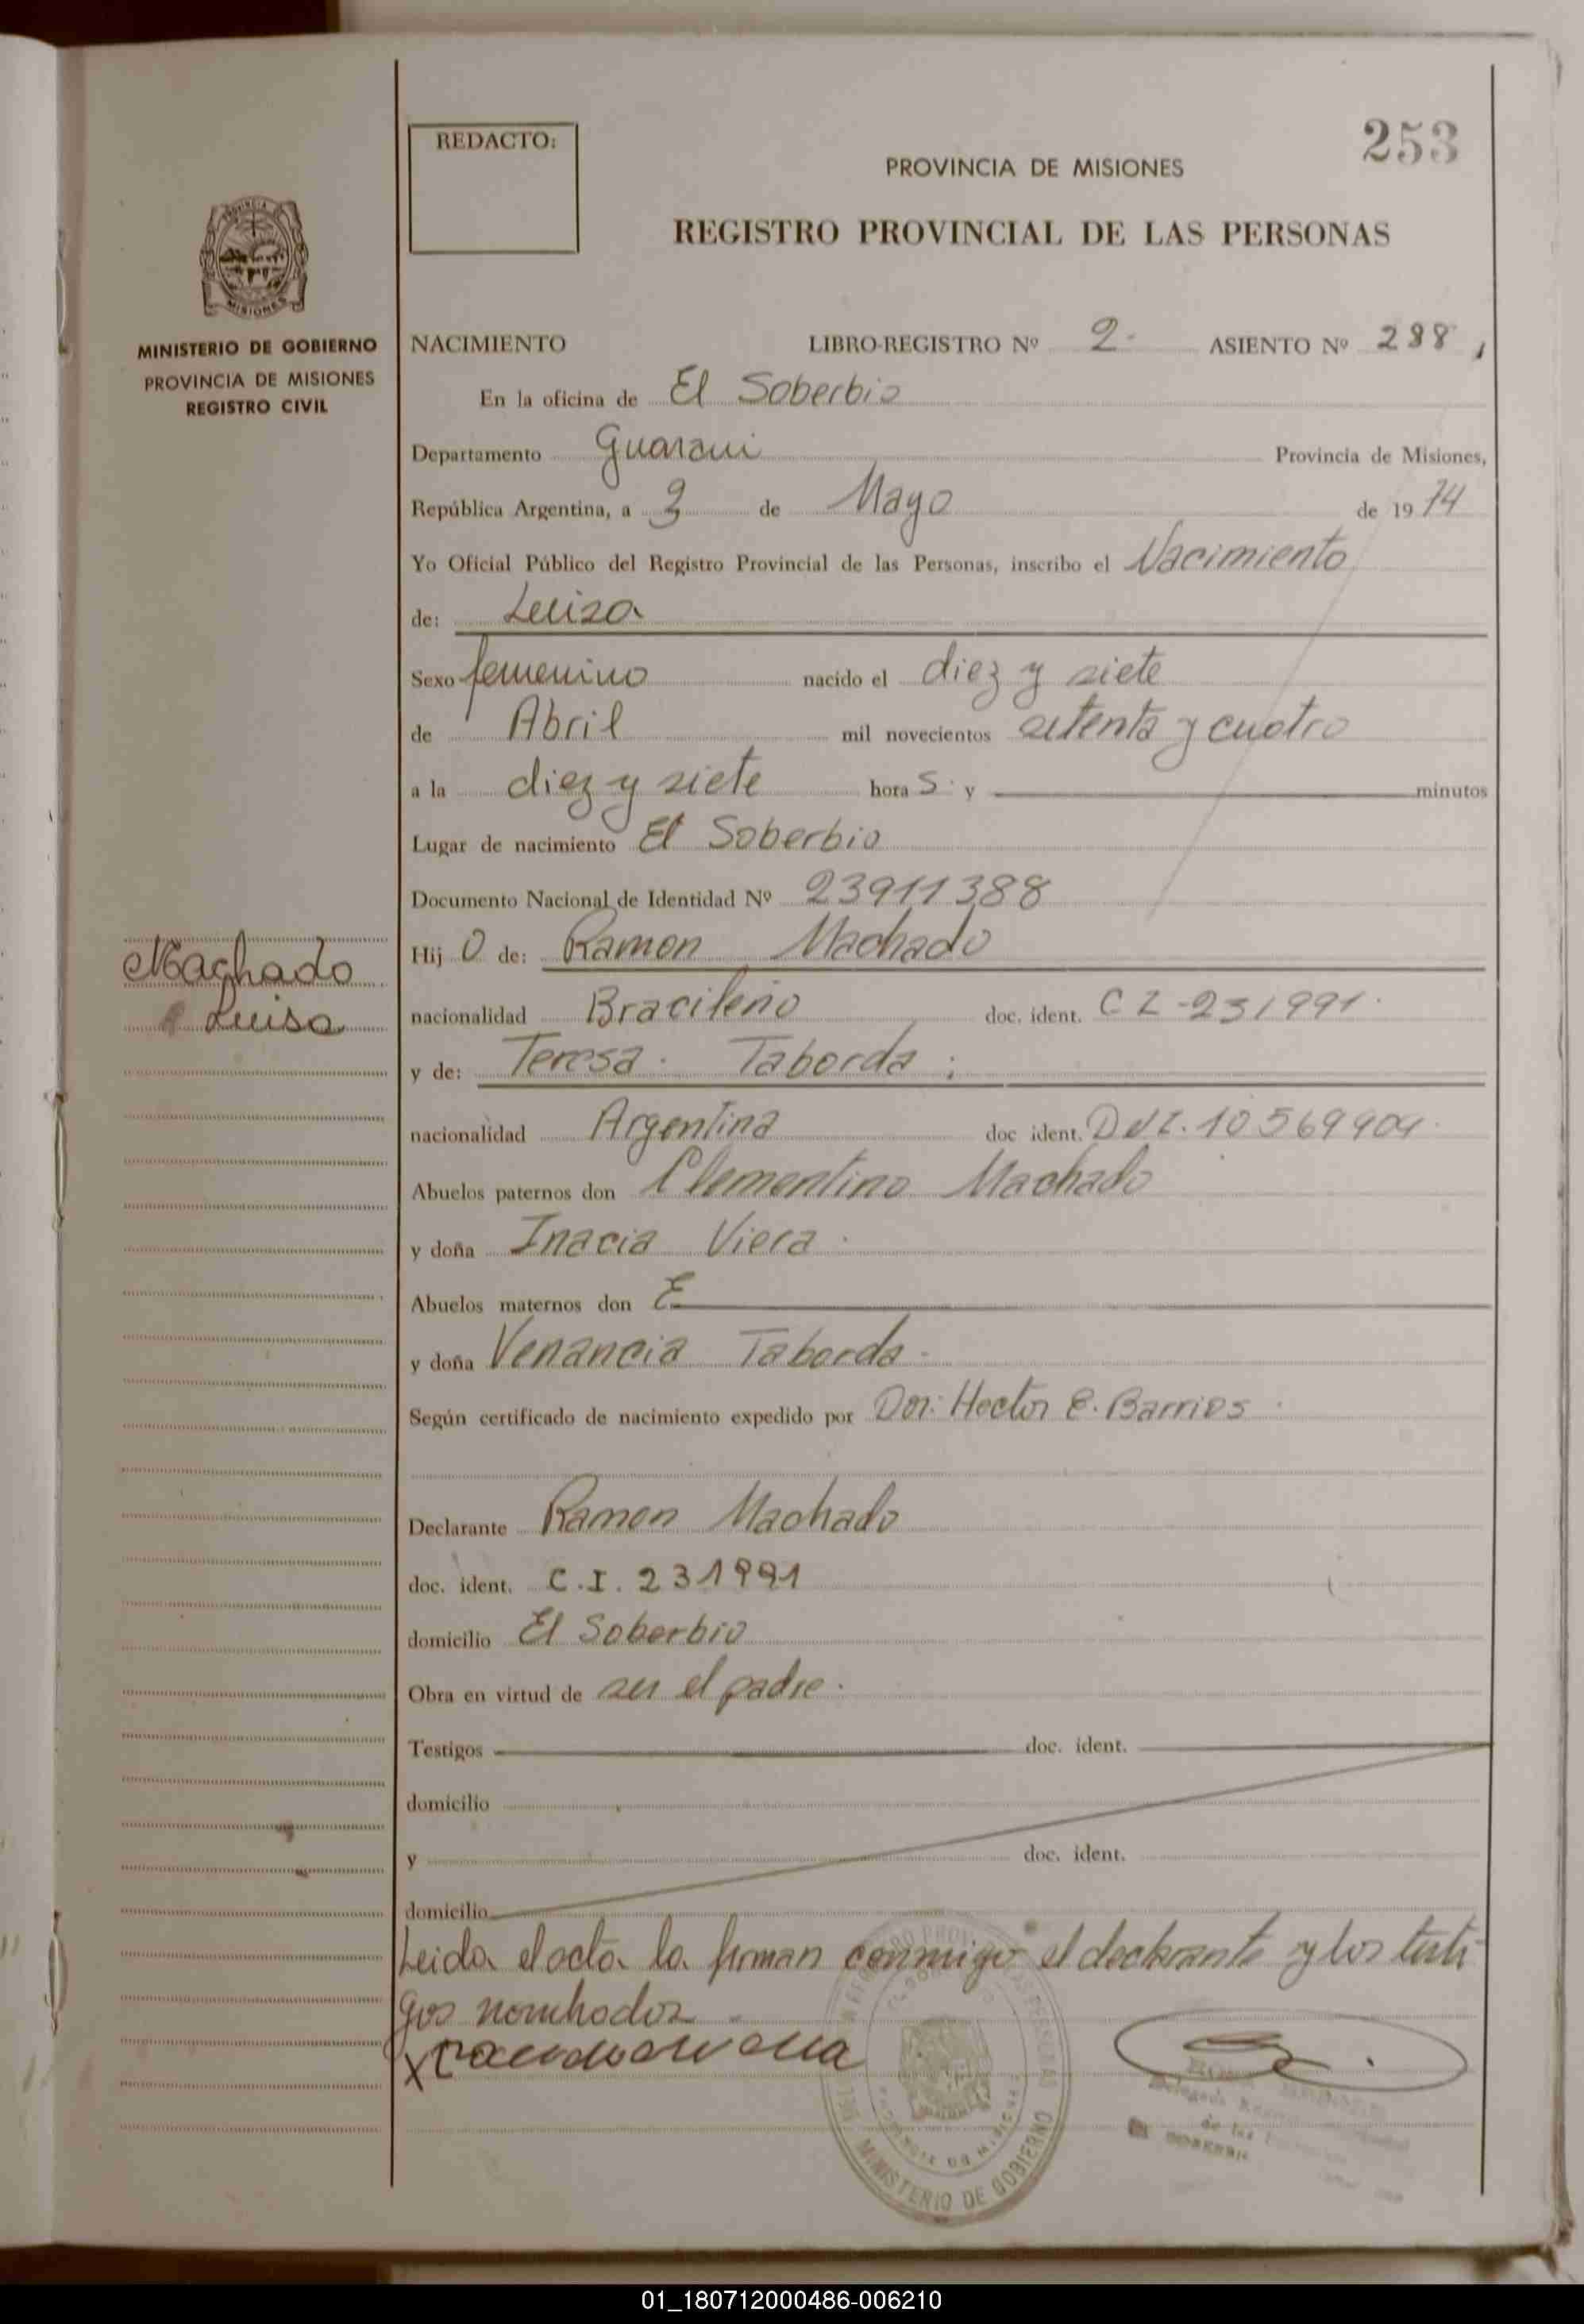 REDACTO:
253
PROVINCIA DE MISIONES
REGISTRO PROVINCIAL DE LAS PERSONAS
MISIONES
MINISTERIO DE GOBIERNO
PROVINCIA DE MISIONES
REGISTRO CIVIL
NACIMIENTO LIBRO-REGISTRO Nº 2- ASIENTO Nº 288,
En la oficina de El Soberbio
Departamento Guarani Provincia de Misiones,
República Argentina, a 3 de Mayo de 1974
Yo Oficial Público del Registro Provincial de las Personas, inscribo el Nacimiento
de: Luiza
Sexo femenino nacido el diez y siete
de Abril mil novecientos setenta y cuatro
a la diez y siete hora s y minutos
Lugar de nacimiento El Soberbio
Documento Nacional de Identidad Nº 23911388
Machado
Luisa
Hij O de: Ramon Machado
nacionalidad Bracileño doc. ident. C I -231991.
y de: Teresa. Taborda;
nacionalidad Argentina doc ident. DNI. 10569904.
Abuelos paternos don Clementino Machado
y doña Inacia Viera.
Abuelos maternos don
y doña Venancia Taborda-
Según certificado de nacimiento expedido por Don: Hector E. Barrios.
Declarante Ramon Machado
doc. ident. C.I. 231991
domicilio El Soberbio
Obra en virtud de ser el padre.
Testigos doc. ident.
domicilio
y doc. ident.
domicilio
Leida el acta la firman conmigo el declarante y los testi
gos nombrados
MINISTERIO DE GOBIERNO
de las
01_180712000486-006210